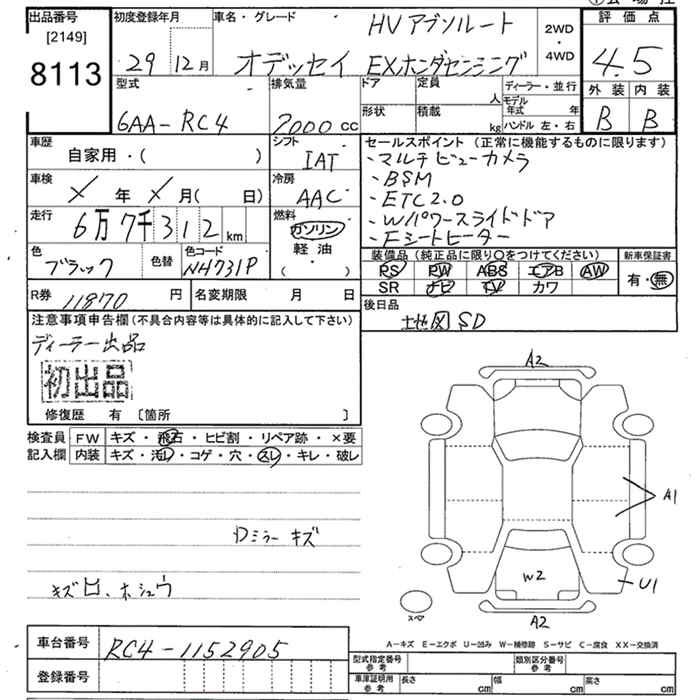 出品番号 初度登録年月 車名・グレード HVアブソルート 2WD・4WD 評価点
[2149]
8113 29 12月 オデッセイ EXホンダセンシング 4.5
型式 排気量 ドア 定員 人 ディーラー・並行 外装 内装
モデル年式 年
6AA-RC4 2000cc 形状 積載 kg ハンドル 左・右 B B
車歴 シフト セールスポイント (正常に機能するものに限ります)
自家用・( ) IAT ・マルチビューカメラ
車検 冷房 ・BSM
メ 年 メ 月( 日) AAC ・ETC2.0
走行 燃料 ・W/パワースライドドア
6万7千312km ガソリン ・Fシートヒーター
軽油・( )
色 色替 色コード 装備品(純正品に限り○をつけてください) 新車保証書
ブラック NH731P PS PW ABS エアB AW 有・無
SR ナビ TV カワ
R券 11870円 名変期限 月 日 後日品
地図SD
注意事項申告欄(不具合内容等は具体的に記入して下さい)
ディーラー出品
初出品
修復歴 有 〔箇所 〕
検査員 FW キズ・飛石・ヒビ割・リペア跡・×要
記入欄 内装 キズ・汚れ・コゲ・穴・スレ・キレ・破レ
A2
A1
Dミラーキズ
W2
キズ
U1
スペア
A2
A-キズ E-エクボ U-凹み W-補修跡 S-サビ C-腐食 XX-交換済
車台番号 RC4-1152905 型式指定番号 参考 類別区分番号 参考
登録番号 車庫証明用 参考 長さ cm 幅 cm 高さ cm